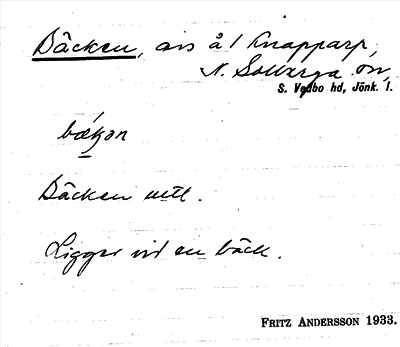 Bäcken, avs å 1 Knapparp,
N. Solberga sn,
S. Vedbo hd, Jönk. l.
Bäcken uttl.
Ligger vid en bäck.
FRITZ ANDERSSON 1933.